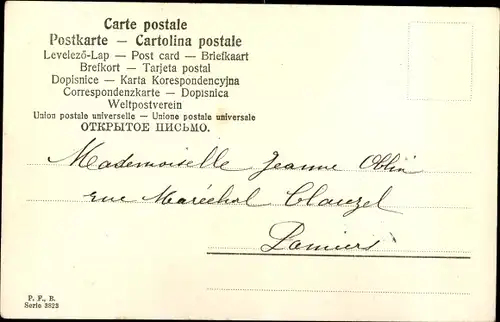 Carte postale
Postkarte — Cartolina postale
Levelező-Lap — Post card — Briefkaart
Brefkort — Tarjeta postal
Dopisnice — Karta Korespondencyjna
Correspondenzkarte — Dopisnica
Weltpostverein
Union postale universelle — Unione postale universale
ОТКРЫТОЕ ПИСЬМО.
Mademoiselle Jeanne Oblin
rue Maréchal Clauzel
Pamiers
P. F., B.
Serie 3823